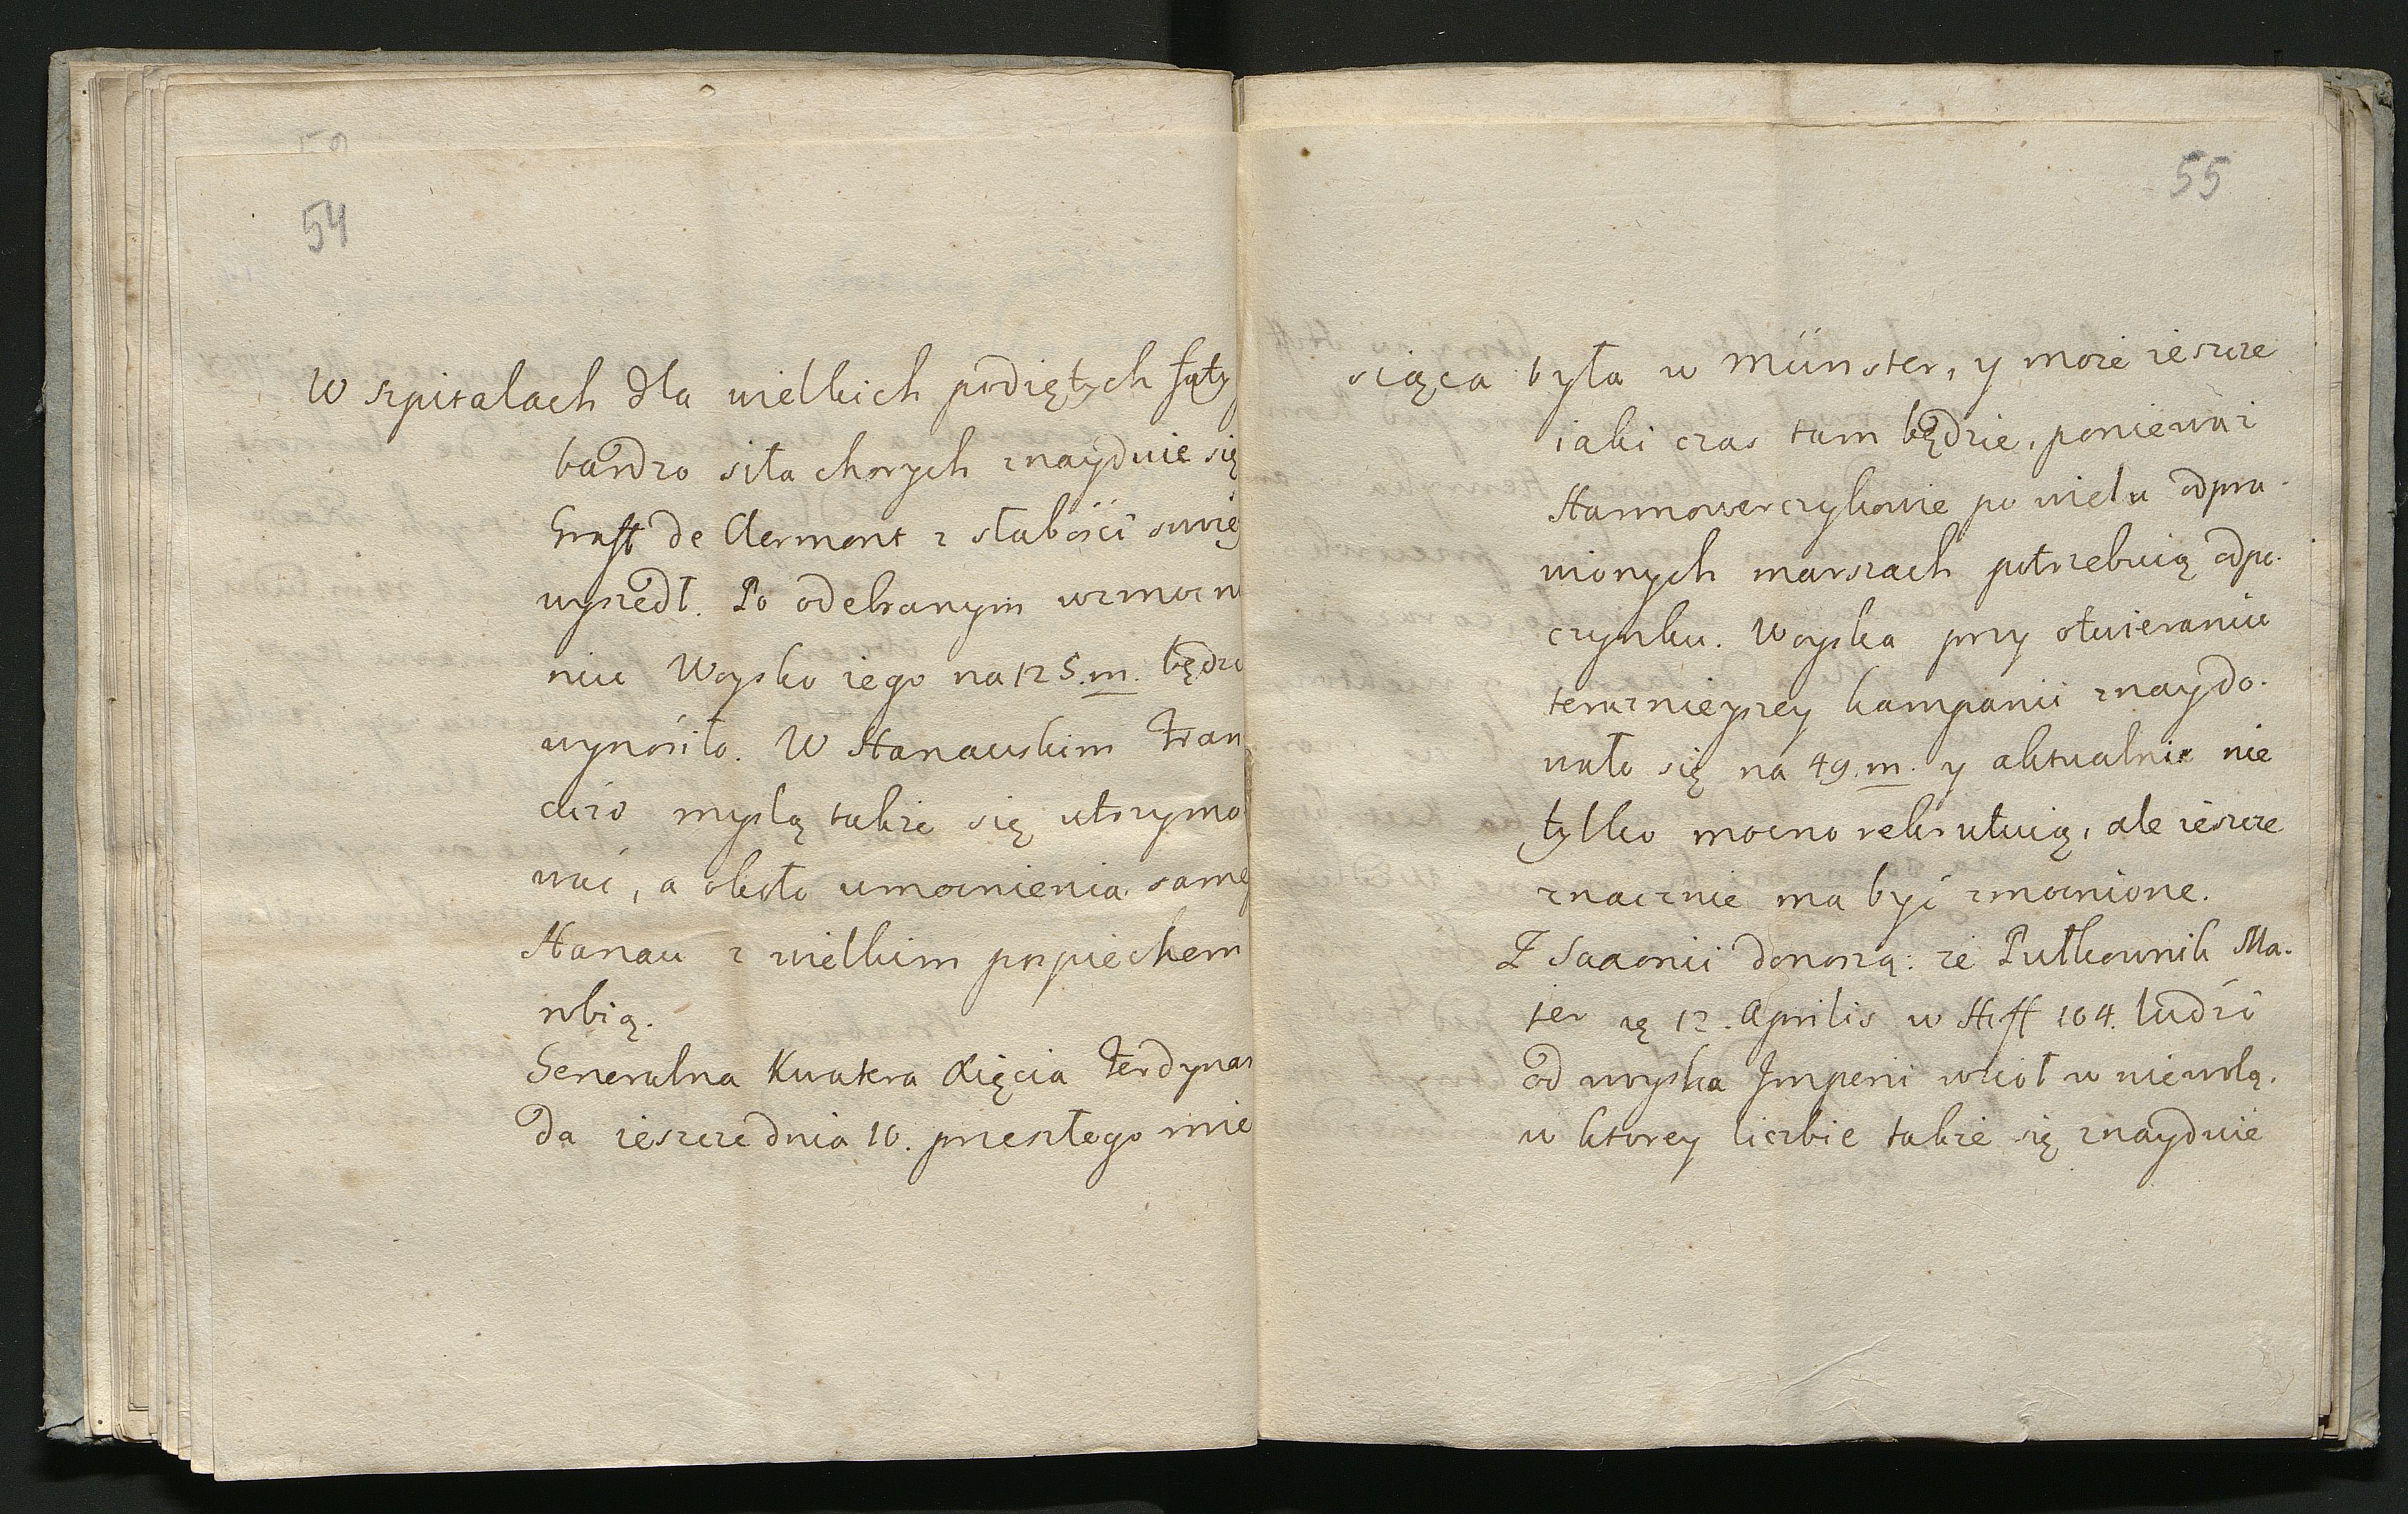 54
W szpitalach dla wielkich podiętych faty
bardzo siła chorych znayduie się
Graff de Clermont z słabości swię
wyszedł. Po odebranym wzmocn
niu Woysko iego na 125.m. będzi
wynosiło. W Hanauskim Fran
cuzo myslą także się utrzymo
wać, a około umocnienia samę
Hanau z wielkim pospiechem
robią.
Generalna Kwatera Xięcia Ferdynan
da ieszcze dnia 10. przeszłego mie
55
siąca była w Münster, y może ieszcze
iaki czas tam będzie, ponieważ
Hannowerczykowie po wielu odpra-
wionych marszach potrzebuią odpo-
czynku. Woyska przy otwieraniu
teraznieyszey kampanii znaydo-
wało się na 49.m. y aktualnie nie
tylko mocno rekrutuią, ale ieszcze
znacznie ma być zmocnione.
Z Saxonii donoszą: że Pułkownik Ma-
ier 12. Aprilis w Hoff 104. ludzi
od woyska Imperii wzioł w niewolą.
w ktorey liczbie także się znayduie